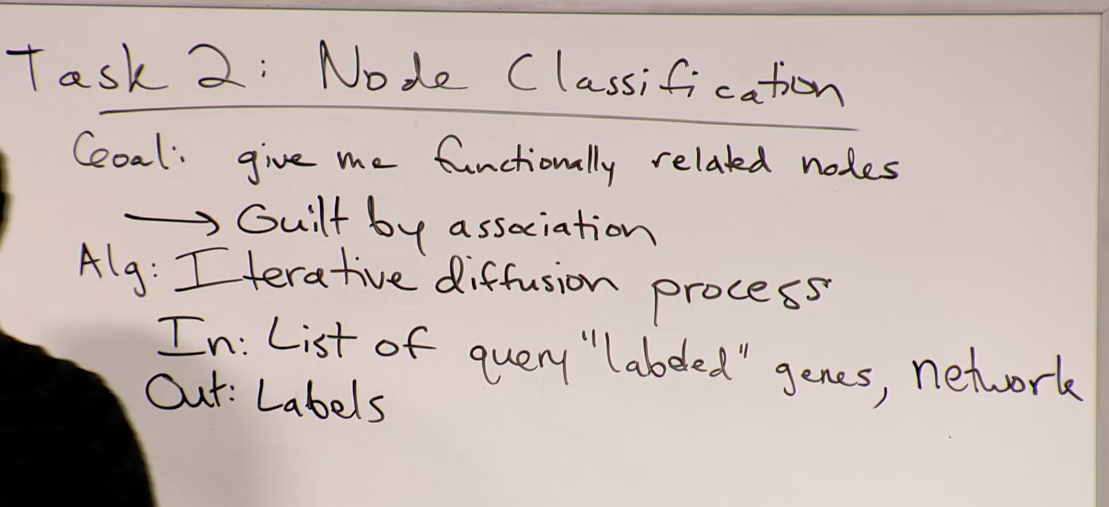 Task 2: Node Classification
Goal: give me functionally related nodes
→ Guilt by association
Alg: Iterative diffusion process
In: List of query "labeled" genes, network
Out: Labels